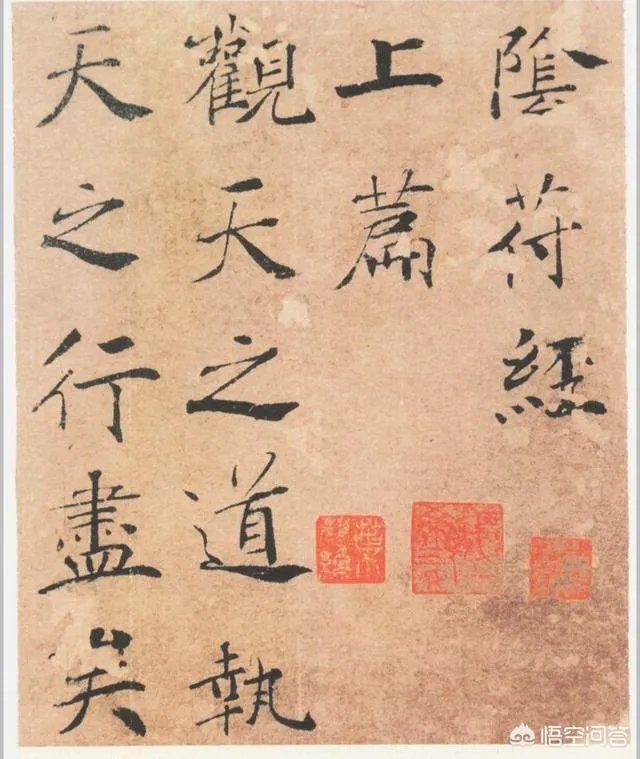 陰符經
上萹
觀天之道執
天之行盡矣
悟空问答